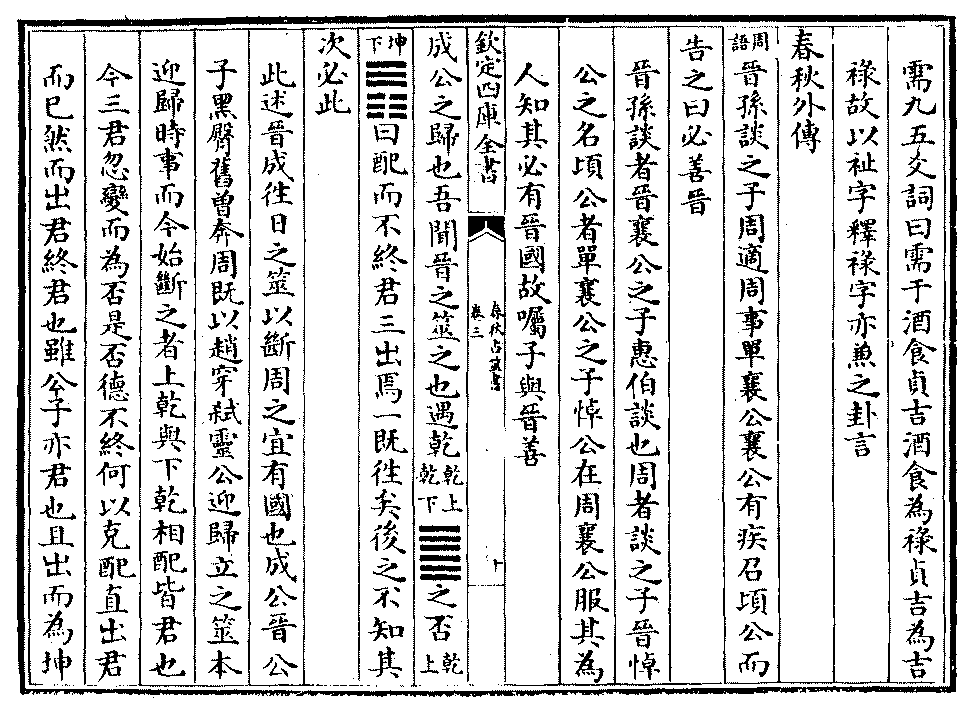 需九五爻詞曰需于酒食貞吉酒食為祿貞吉為吉
祿故以祉字釋祿字亦兼之卦言
春秋外傳
周語晉孫談之子周適周事單襄公襄公有疾召頃公而
告之曰必善晉
晉孫談者晉襄公之子惠伯談也周者談之子晉悼
公之名頃公者單襄公之子悼公在周襄公服其為
人知其必有晉國故囑子與晉善
欽定四庫全書
春秋占筮書
卷三
十
成公之歸也吾聞晉之筮之也遇乾乾上乾下䷀之否乾上
坤下䷋曰配而不終君三出焉一既徃矣後之不知其
次必此
此述晉成徃日之筮以斷周之宜有國也成公晉公
子黑臀舊曾奔周既以趙穿弑靈公迎歸立之筮本
迎歸時事而今始斷之者上乾與下乾相配皆君也
今三君忽變而為否是否德不終何以克配直出君
而已然而出君終君也雖公子亦君也且出而為坤